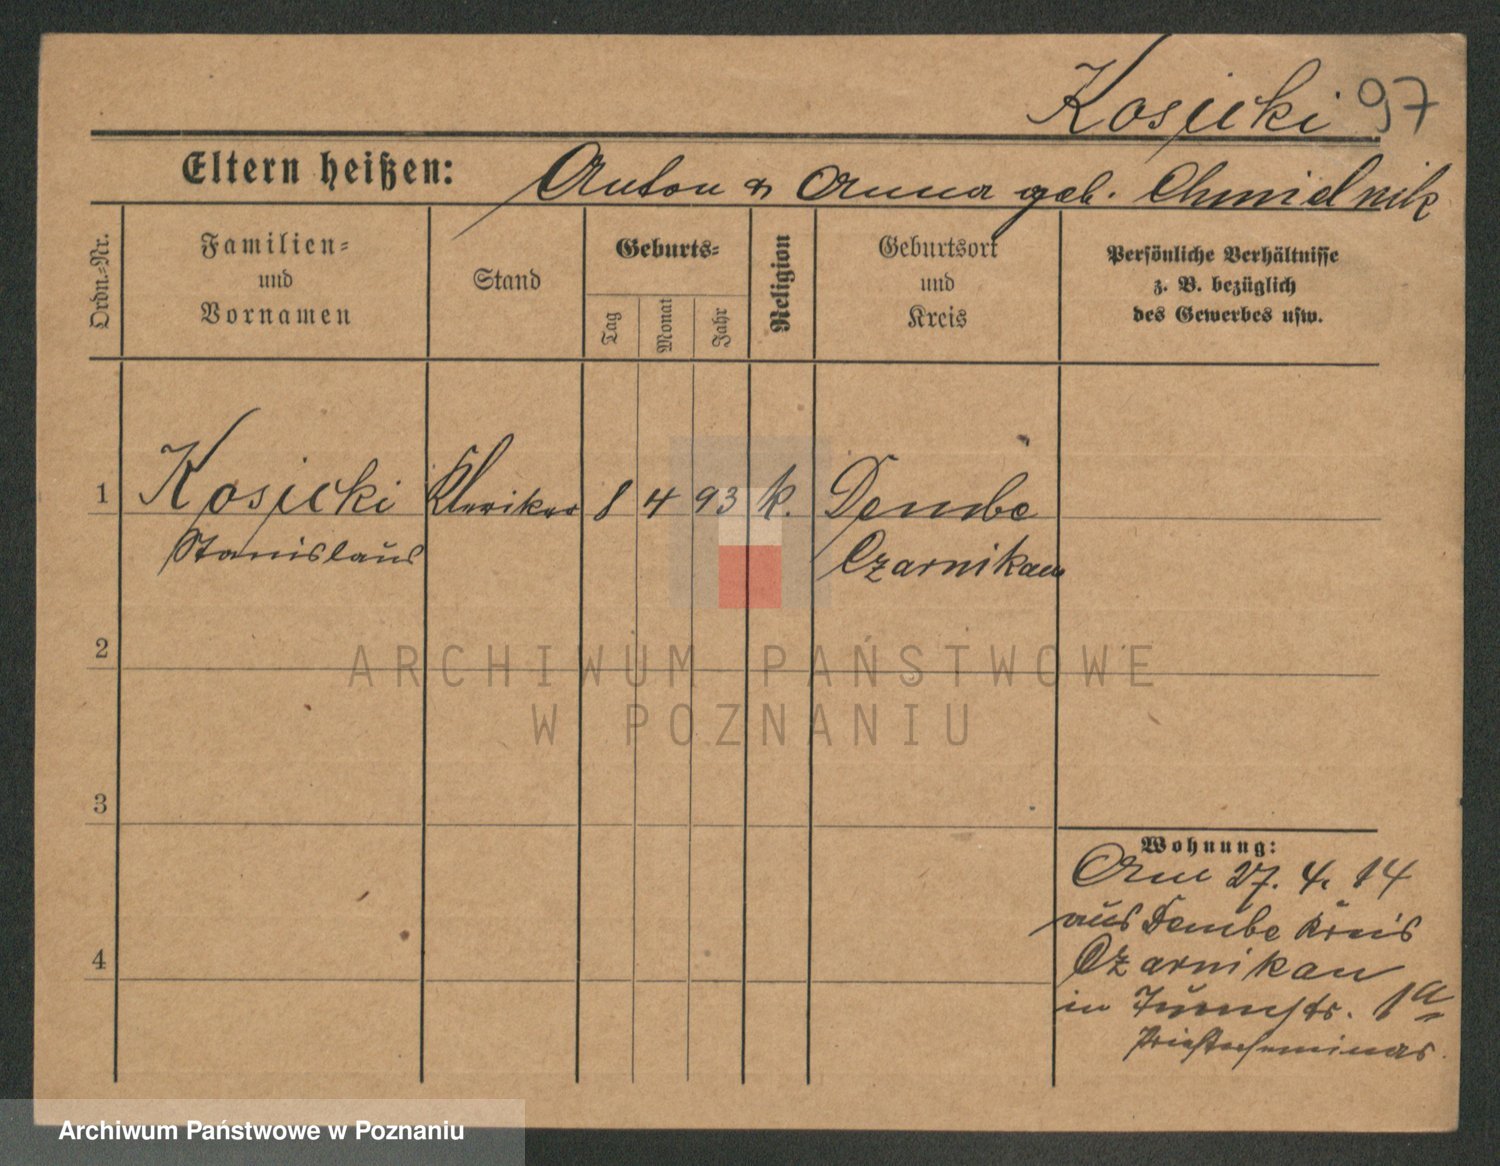 Kosicki 97
Eltern heißen: Anton & Anna geb. Chmielnik
Ordn.=Nr.
Familien=
und
Vornamen
Stand
Geburts=
Tag
Monat
Jahr
Religion
Geburtsort
und
Kreis
Persönliche Verhältnisse
z. B. bezüglich
des Gewerbes usw.
1 Kosicki Kleriker 8 4 93 k. Dembe
Stanislaus Czarnikau
2
ARCHIWUM PAŃSTWOWE
W POZNANIU
3
4
Wohnung:
Am 27. 4. 14
aus Dembe Kreis
Czarnikau
in 1a
Priesterseminar.
Archiwum Państwowe w Poznaniu